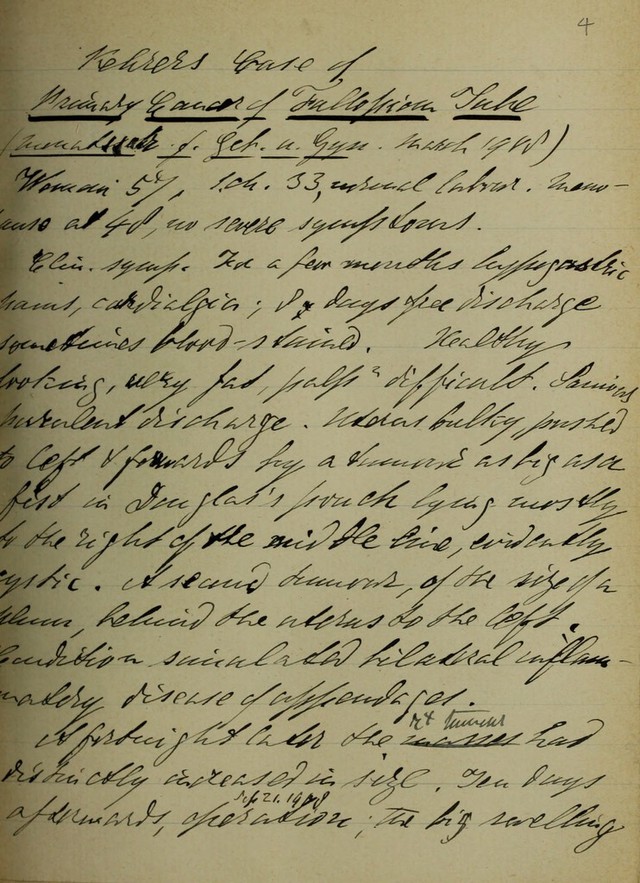 4
Kehrer's Case of
Primary Cancer of Fallopian Tube
(Monatssch. f. Geb. u. Gyn. March 1908)
Woman 57, 1 ch. 33, normal labour. Meno-
ause at 48, no severe symptoms.
Clin. symp. For a few months hypogastric
pains, cardialgia; 8 days free discharge
sometimes blood-stained. Healthy
looking, very fat, palpn difficult.
purulent discharge. Uterus bulky, pushed
to left & forwards by a tumour as big as a
fist in Douglas's pouch lying mostly
to the right of the middle line, evidently
cystic. A second tumour, of the size of a
plum, behind the uterus to the left.
Condition simulated bilateral inflam-
matory disease of appendages.
A fortnight later the masses rt tumour had
distinctly increased in size. Ten days
afterwards, operation; the big swelling